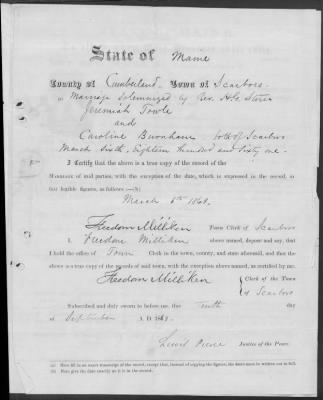 State of Maine
County of Cumberland. Town of Scarboro.
Marriage solemnized by Rev.
Jeremiah Towle
and
Caroline Burnham both of Scarboro
March Sixth, Eighteen hundred and Sixty one.
I Certify that the above is a true copy of the record of the
Marriage of said parties, with the exception of the date, which is expressed in the record, in
legible figures, as follows :—(b)
March 6th 1861.
Freedom Milliken Town Clerk of Scarboro
I, Freedom Milliken above named, depose and say, that
I hold the office of Town Clerk in the town, county, and state aforesaid, and that the
above is a true copy of the records of said town, with the exception above named, as certified by me.
Freedom Milliken { Clerk of the Town
of Scarboro
Subscribed and duly sworn to before me, this Tenth day
of September A. D. 186
Justice of the Peace.
(a) Here fill in an exact transcript of the record, except that, instead of copying the figures, the dates must be written out in full.
(b) Here give the date exactly as it is in the record.